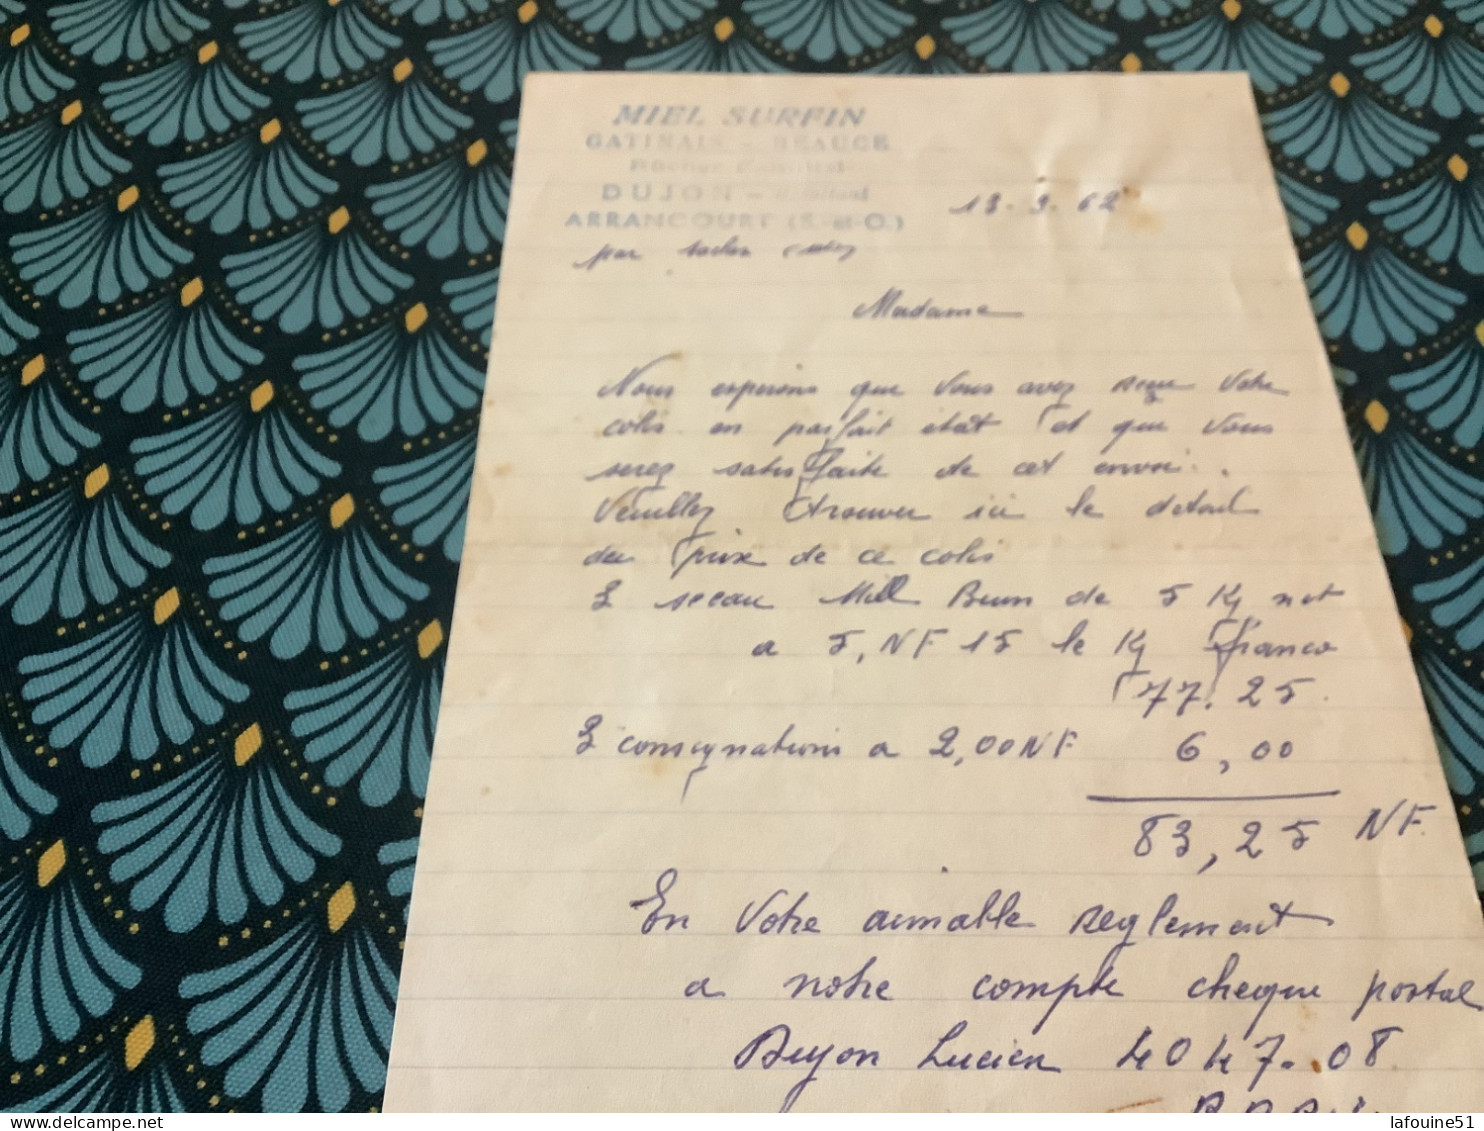 MIEL SURFIN
GATINAIS - BEAUCE
DUJON -
ARRANCOURT (S.-et-O.)
13.3.62
par
Madame
Nous esperons que Vous avez reçu Votre
colis en parfait état et que Vous
serez satisfaite de cet envoi.
Veuillez trouver ici le detail
du prix de ce colis
3 seau Miel Brun de 5 Kg net
a 5, NF 15 le Kg franco
77.25
3 consignations a 2,00 NF 6,00
83,25 NF.
En Votre aimable reglement
a notre compte cheque postal
Dujon Lucien 4047.08
lafouine51
delcampe.net